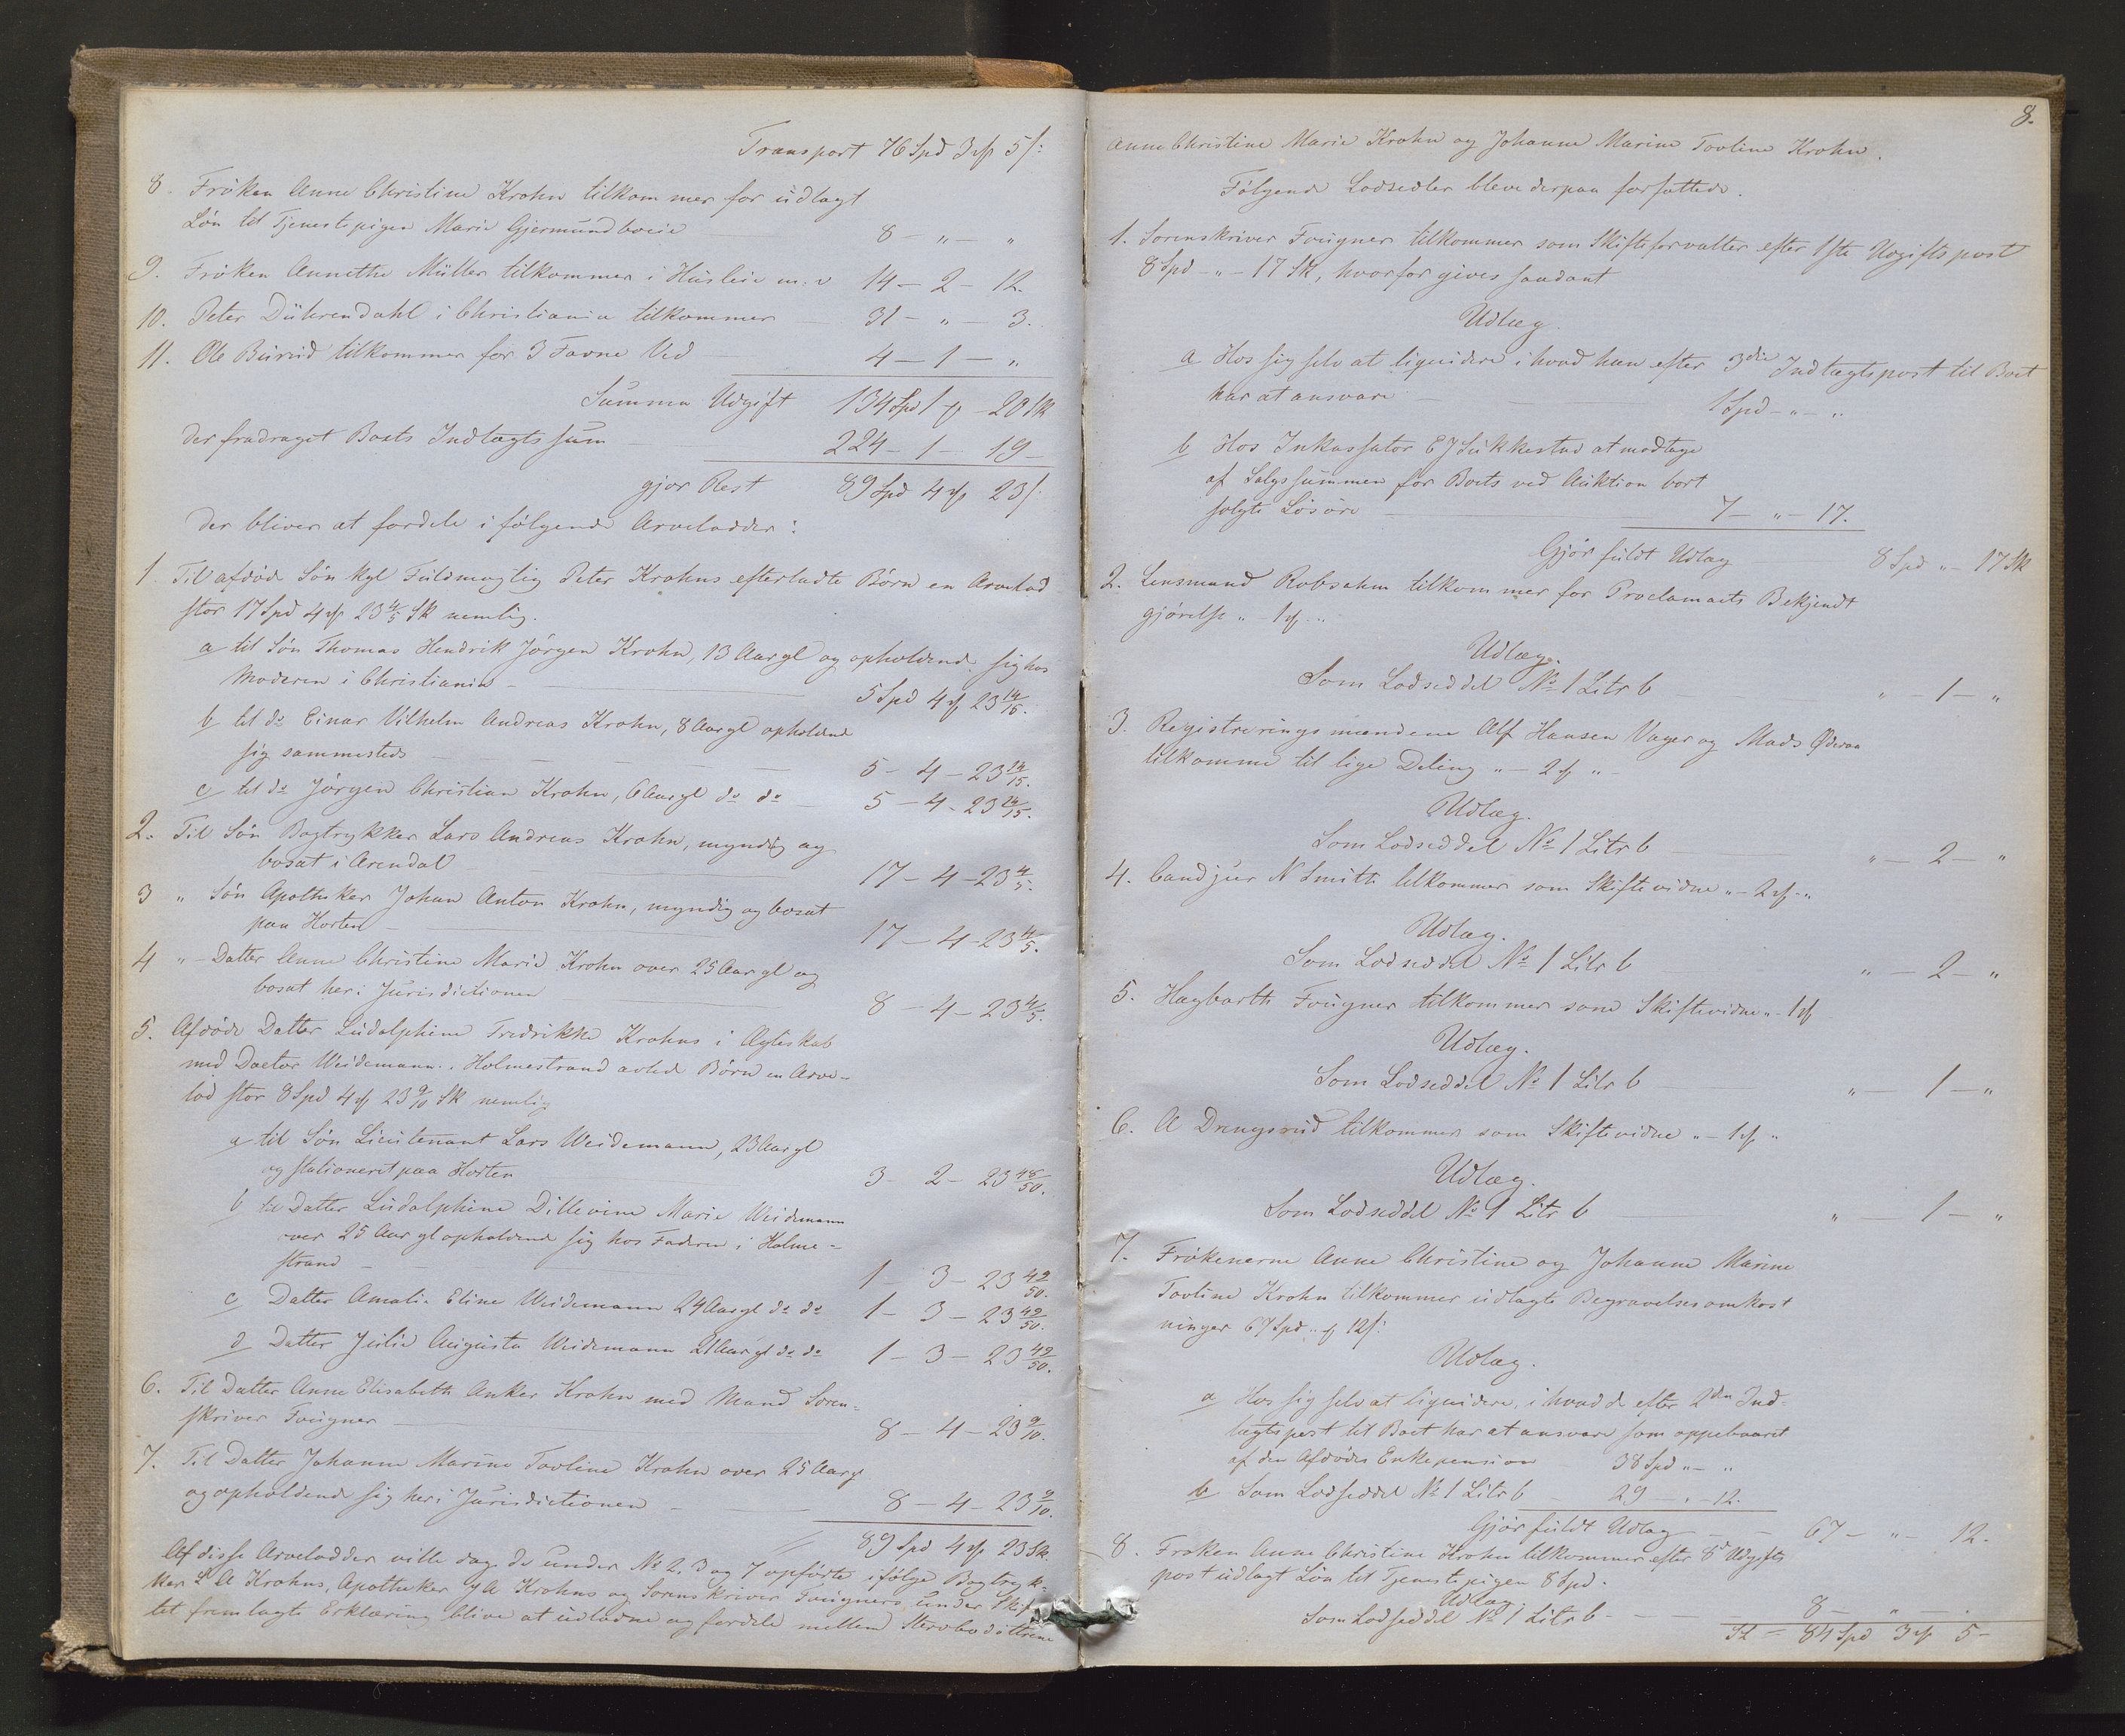 Transport 76 Spd 3 ₰ 5 s:
8. Fröken Anne Christine Krohn tilkommer for udlagt
Løn til Tjenestepigen Marie Gjermundboeie 8 - „ - „
9. Fröken Annethe Müller tilkommer i Husleie m: v 14 - 2 - 12.
10. Peter Dührendahl i Christiania tilkommer 31 - „ - 3.
11. Ole Burud tilkommer for 3 Favne Ved 4 - 1 - „
Summa Udgift 134 Spd 1 ₰ - 20 Sk
der fradraget Boets Indtægtssum 224 - 1 - 19 -
gjør Rest 89 Spd 4 ₰ 23 s:
der bliver at fordele i følgende Arvelodder:
1. Til afdøde Søn kgl Fuldmægtig Peter Krohns efterladte Børn en Arvelod
stor 17 Spd 4 ₰ 23 4/5 Sk nemlig.
a til Søn Thomas Hendrik Jörgen Krohn, 13 Aar gl og opholdende sig hos
Moderen i Christiania - 5 Spd 4 ₰ 23 14/15.
b til do Einar Vilhelm Andreas Krohn, 8 Aar gl opholdend
sig sammesteds - 5 - 4 - 23 14/15.
c til do Jörgen Christian Krohn, 6 Aar gl do do 5 - 4 - 23 14/15.
2. Til Søn Bogtrykker Lars Andreas Krohn, myndig og
bosat i Arendal - 17 - 4 - 23 4/5.
3 „ Søn Apotheker Johan Anton Krohn, myndig og bosat
paa Horten - 17 - 4 - 23 4/5.
4 „ - Datter Anne Christine Marie Krohn over 25 Aar gl og
bosat her i Jurisdictionen 8 - 4 - 23 4/5.
5. Afdøde Datter Ludolphine Fredrikke Krohns i Ægteskab
med Doctor Weidemann i Holmestrand avlede Børn en Arve-
lod stor 8 Spd 4 ₰ 23 9/10 Sk nemlig
a til Søn Lieutenant Lars Weidemann, 23 Aar gl
og stationeret paa Horten 3 - 2 - 23 48/50.
b til Datter Ludolphine Dillevine Marie Weidemann
over 25 Aar gl opholdend sig hos Faderen i Holme-
strand - 1 - 3 - 23 49/50.
c Datter Amalie Eline Weidemann 24 Aar gl do do 1 - 3 - 23 49/50.
d Datter Julie Augusta Weidemann 21 Aar gl do do 1 - 3 - 23 49/50.
6. Til Datter Anne Elisabeth Anker Krohn med Mand Soren-
skriver Fougner 8 - 4 - 23 9/10.
7. Til Datter Johanne Marine Tovline Krohn over 25 Aar gl
og opholdende sig her i Jurisdictionen - 8 - 4 - 23 9/10.
89 Spd 4 ₰ 23 Sk
Af disse Arvelodder ville dog de under No 2, 3 og 7 opförte ifølge Bogtryk-
ker L A Krohns, Apotheker J A Krohns og Sorenskriver Fougners under Skif-
tet fremlagte Erklæring blive at udladne og fordele mellem Stervbodöttrene
8.
Anne Christine Marie Krohn og Johanne Marine Tovline Krohn.
Fölgende Lodsedler bleve derpaa forfattede.
1. Sorenskriver Fougner tilkommer som Skifteforvalter efter 1ste Udgiftspost
8 Spd - „ - 17 Sk, hvorfor gives saadant
Udlæg.
a Hos sig selv at liquidere i hvad han efter 3die Indtægtspost til Boet
har at ansvare 1 Spd - „ - „
b Hos Inkassator E J Sukkestad at modtage
af Salgssummen for Boets ved Auktion bort
solgte Løsøre 7 - „ - 17.
Gjør fuldt Udlæg 8 Spd „ - 17 Sk
2. Lensmand Robsahm tilkommer for Proclamaets Bekjendt
gjørelse „ - 1 ₰ „
Udlæg.
Som Lodseddel No 1 Litr b „ - 1 - „
3. Registreringsmændene Alf Hansen Vager og Mads Øderaa
tilkomme til lige Deling „ - 2 ₰ „ -
Udlæg.
Som Lodseddel No 1 Litr b „ - 2 - „
4. Cand jur N Smith tilkommer som Skiftevidne „ - 2 ₰ - „
Udlæg.
Som Lodseddel No 1 Litr b „ - 2 - „
5. Hagbarth Fougner tilkommer som Skiftevidne „ - 1 ₰
Udlæg.
Som Lodseddel No 1 Litr b „ - 1 - „
6. A Drengsrud tilkommer som Skiftevidne „ - 1 ₰ „
Udlæg.
Som Lodseddel No 1 Litr b „ - 1 - „
7. Frökenerne Anne Christine og Johanne Marine
Tovline Krohn tilkommer udlagte Begravelsesomkost
ninger 67 Spd „ ₰ 12 s:
Udlæg.
a Hos sig selv at liquidere, i hvad de efter 2den Ind-
tægtspost til Boet har at ansvare som oppebaaret
af den Afdödes Enkepension 38 Spd „ - „
b Som Lodseddel No 1 Litr b - 29 - „ - 12.
Gjør fuldt Udlæg - 67 - „ - 12.
8. Frøken Anne Christine Krohn tilkommer efter 8de Udgifts
post udlagt Løn til Tjenestepigen 8 Spd.
Udlæg.
Som Lodseddel No 1 Litr b - 8 - „ - .
84 Spd 3 ₰ 5 -